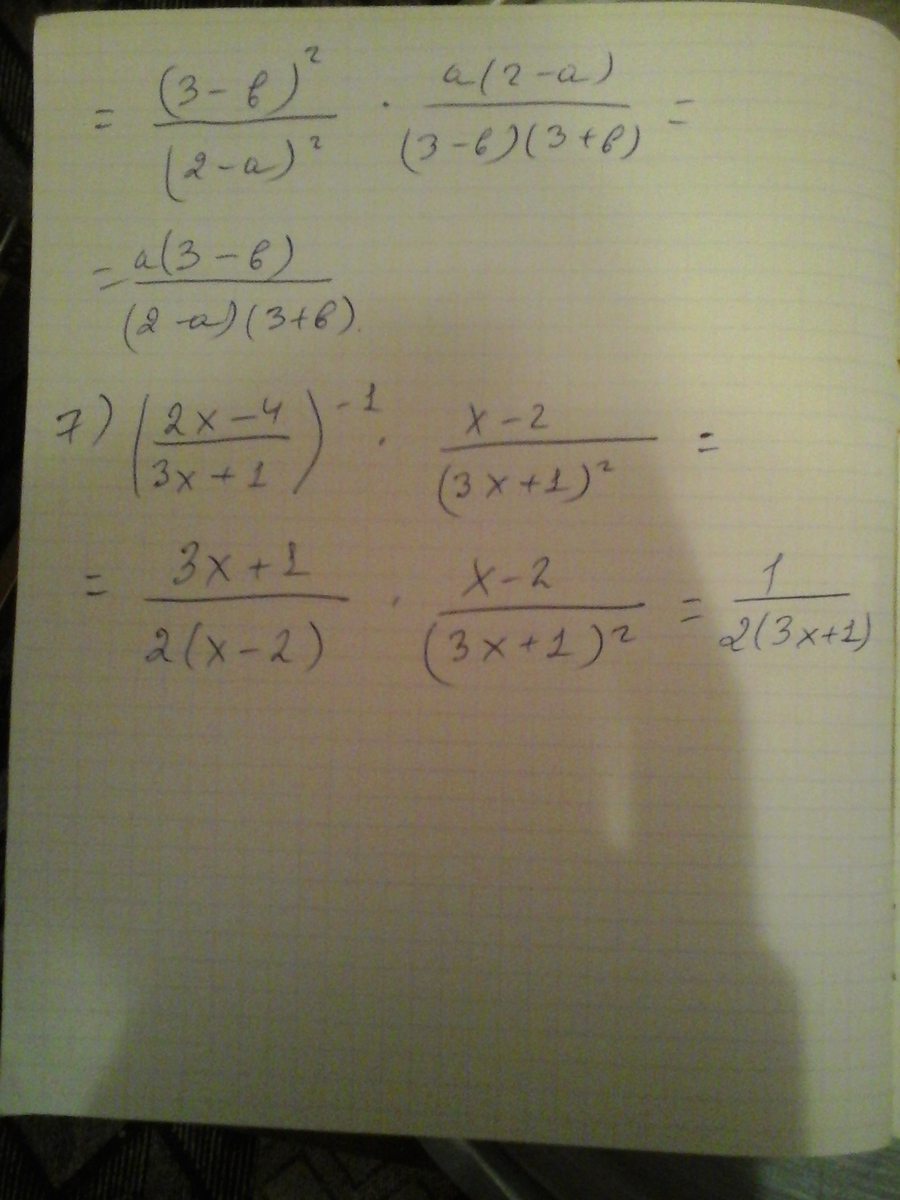 = (3-в)² / (2-a)² · a(2-a) / (3-в)(3+в) =
= a(3-в) / (2-a)(3+в).
7) (2x-4 / 3x+1)⁻¹ · x-2 / (3x+1)² =
= 3x+1 / 2(x-2) · x-2 / (3x+1)² = 1 / 2(3x+1)